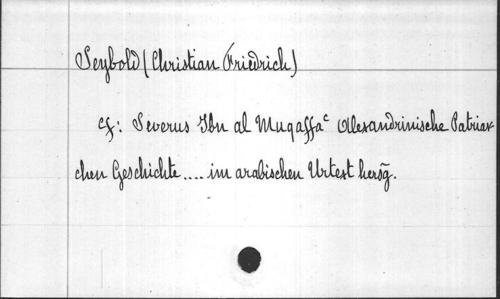 Seybold (Christian Friedrich)
cf: Severus Ibn al Muqaffaᶜ Alexandrinische Patriar
chen Geschichte .... im arabischen Urtext hersg̃.